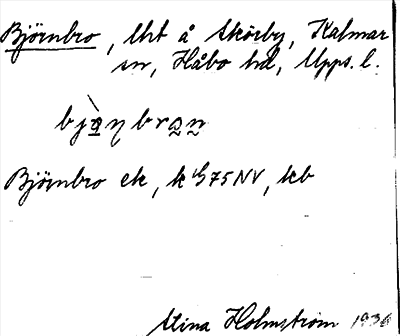 Björnbro, lht å Skörby, Kalmar
sn, Håbo hd, Upps. l.
Björnbro ek, k 75 NV, kb
Stina Holmström 1936